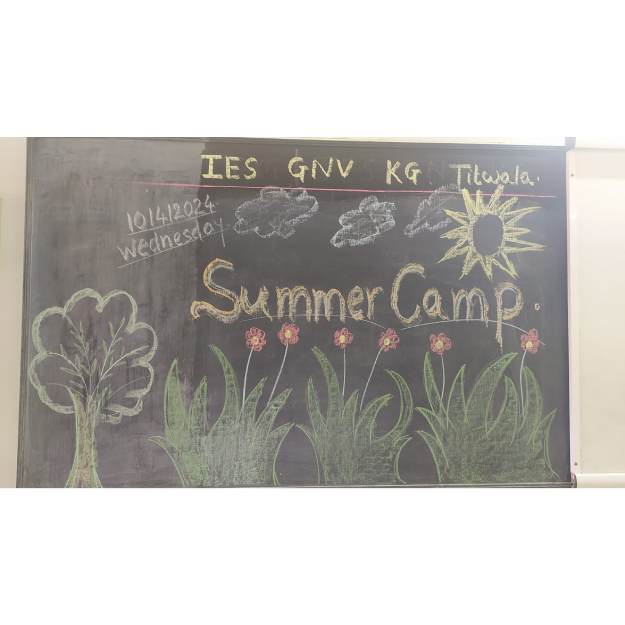 IES GNV KG Titwala.
10/4/2024
Wednesday
Summer Camp.